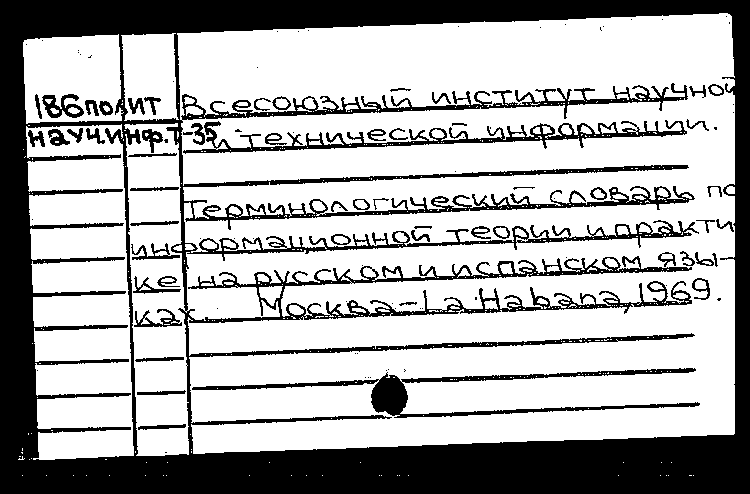 186полит Всесоюзный институт научной
науч.инф.Т-35 и технической информации.
Терминологический словарь по
информационной теории и практи-
ке на русском и испанском язы-
ках. Москва-La Habana, 1969.